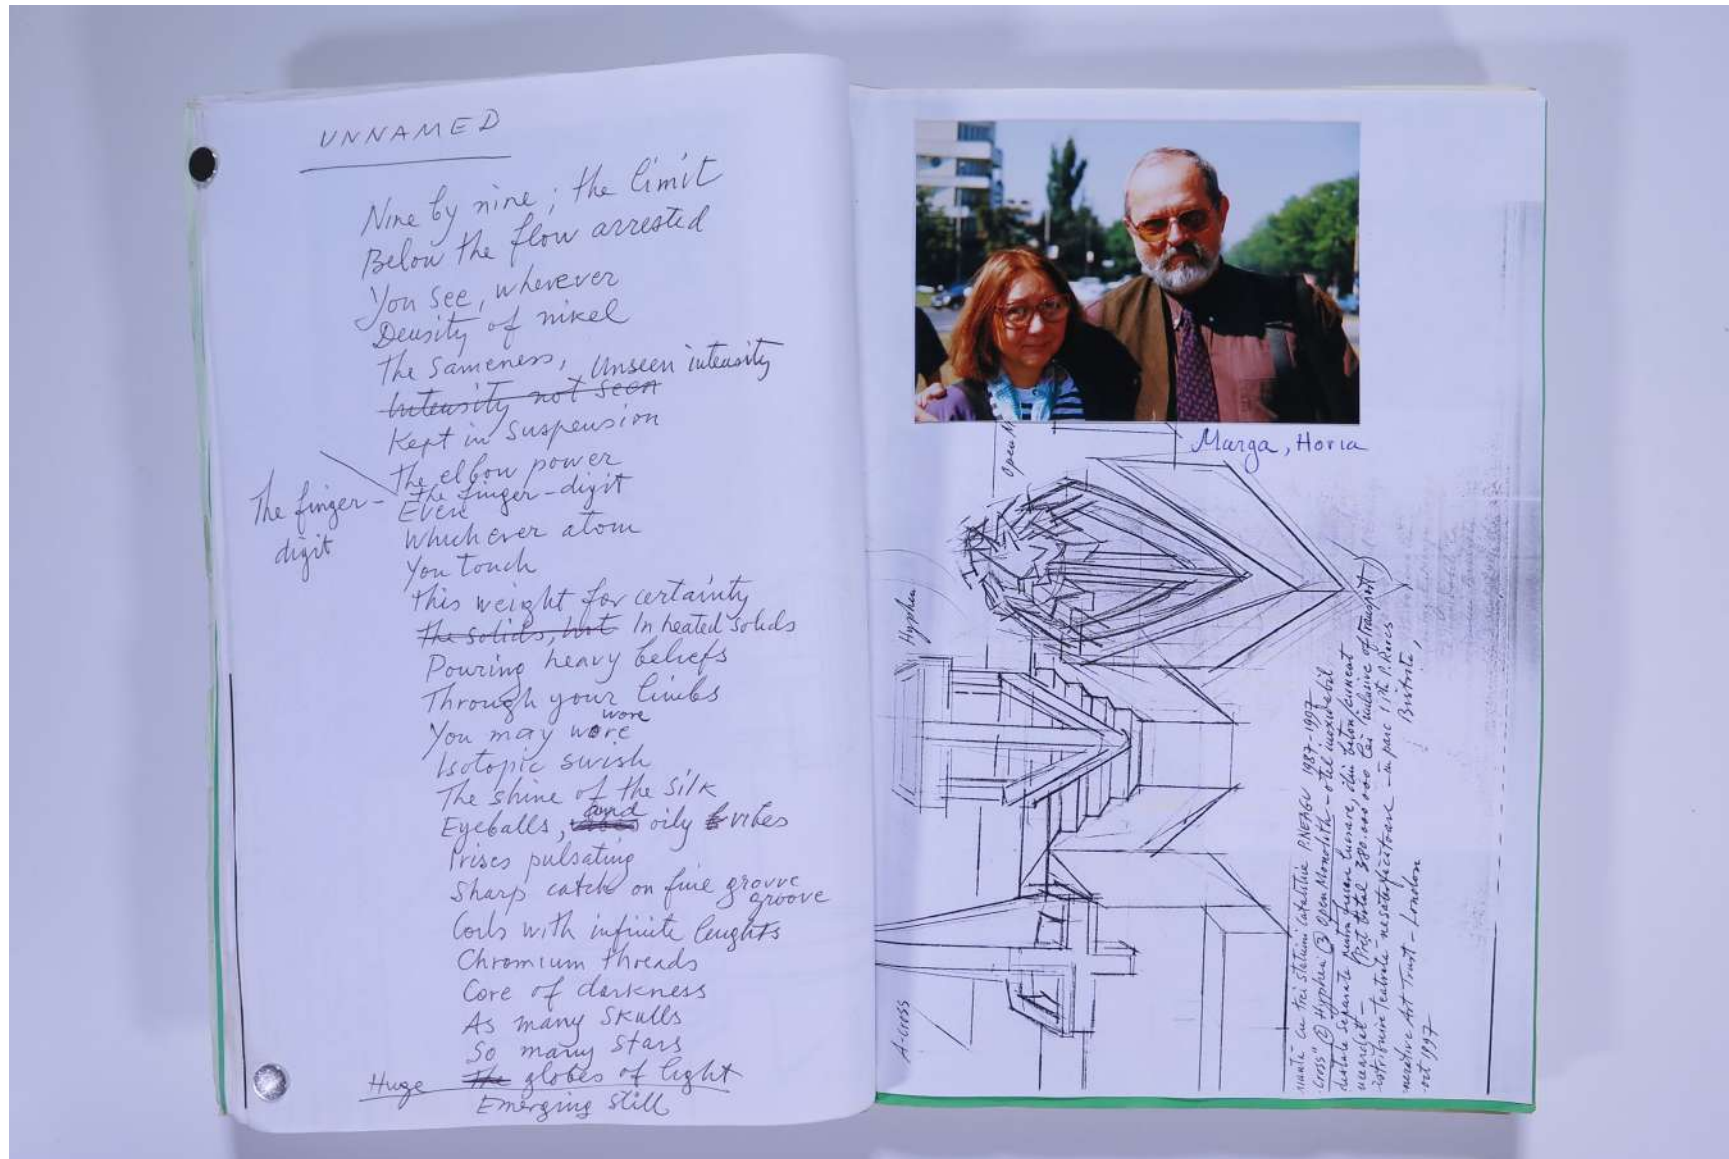 UNNAMED
Nine by nine; the limit
Below the flow arrested
You see, wherever
Density of nikel
The sameness, Unseen intensity
Intensity not seen
Kept in suspension
The elbow power
The finger-digit
The finger-
digit
Even
Whichever atom
You touch
This weight for certainty
The solids, hot In heated solids
Pouring heavy beliefs
Through your limbs
wore
You may wore
Isotopic swish
The shine of the silk
and
Eyeballs, oily vibes
Prises pulsating
Sharp catch on fine groove
groove
Coils with infinite lenghts
Chromium threads
Core of darkness
As many skulls
So many stars
Huge The globes of light
Emerging still
Marga, Horia
Open M
Hyphen
A-Cross
cu trei statiuni catalitice P.NEAGU 1987-1997
Cross" ② Hyphen ③ Open Monolith - otel inoxidabil
separate din beton
- (Pret total 380.000.000 lei inclusive of transport)
- in parc P. Rares
Bistrita,
nerative Art Trust - London
oct 1997